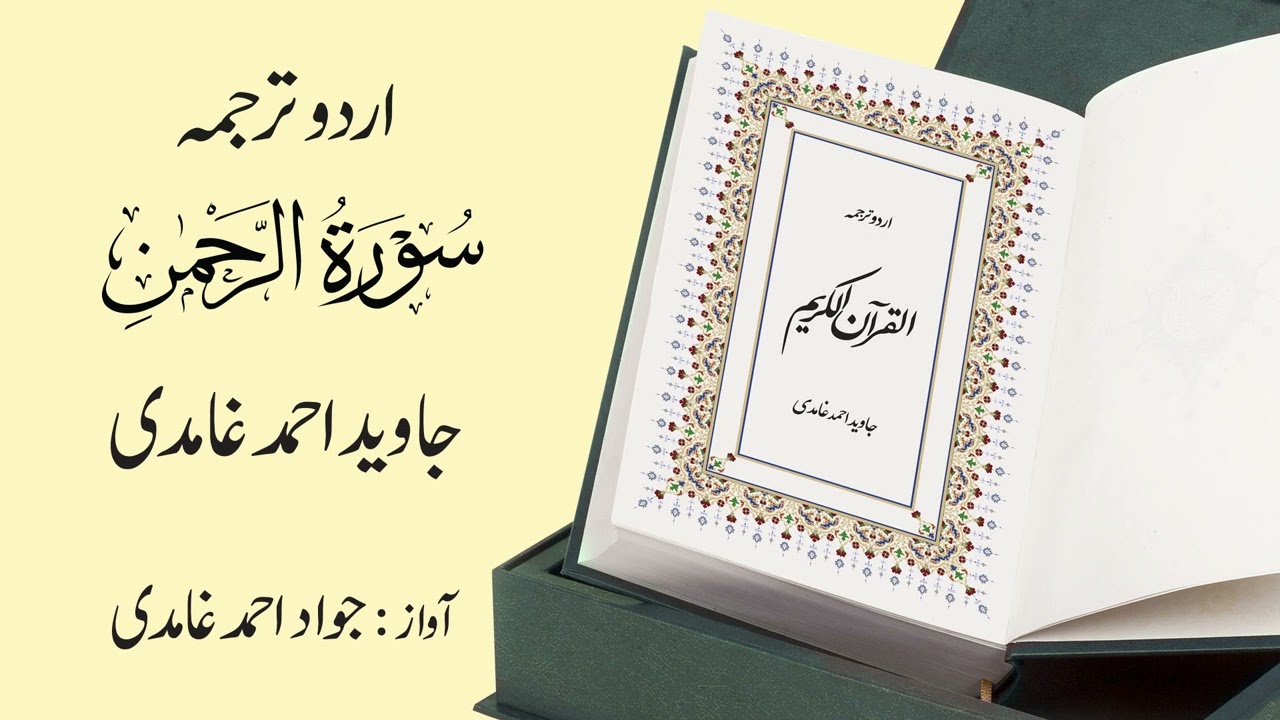 اردو ترجمہ
سُوْرَةُ الرَّحْمٰنِ
جاوید احمد غامدی
آواز : جواد احمد غامدی
اردو ترجمہ
القرآن الکریم
جاوید احمد غامدی